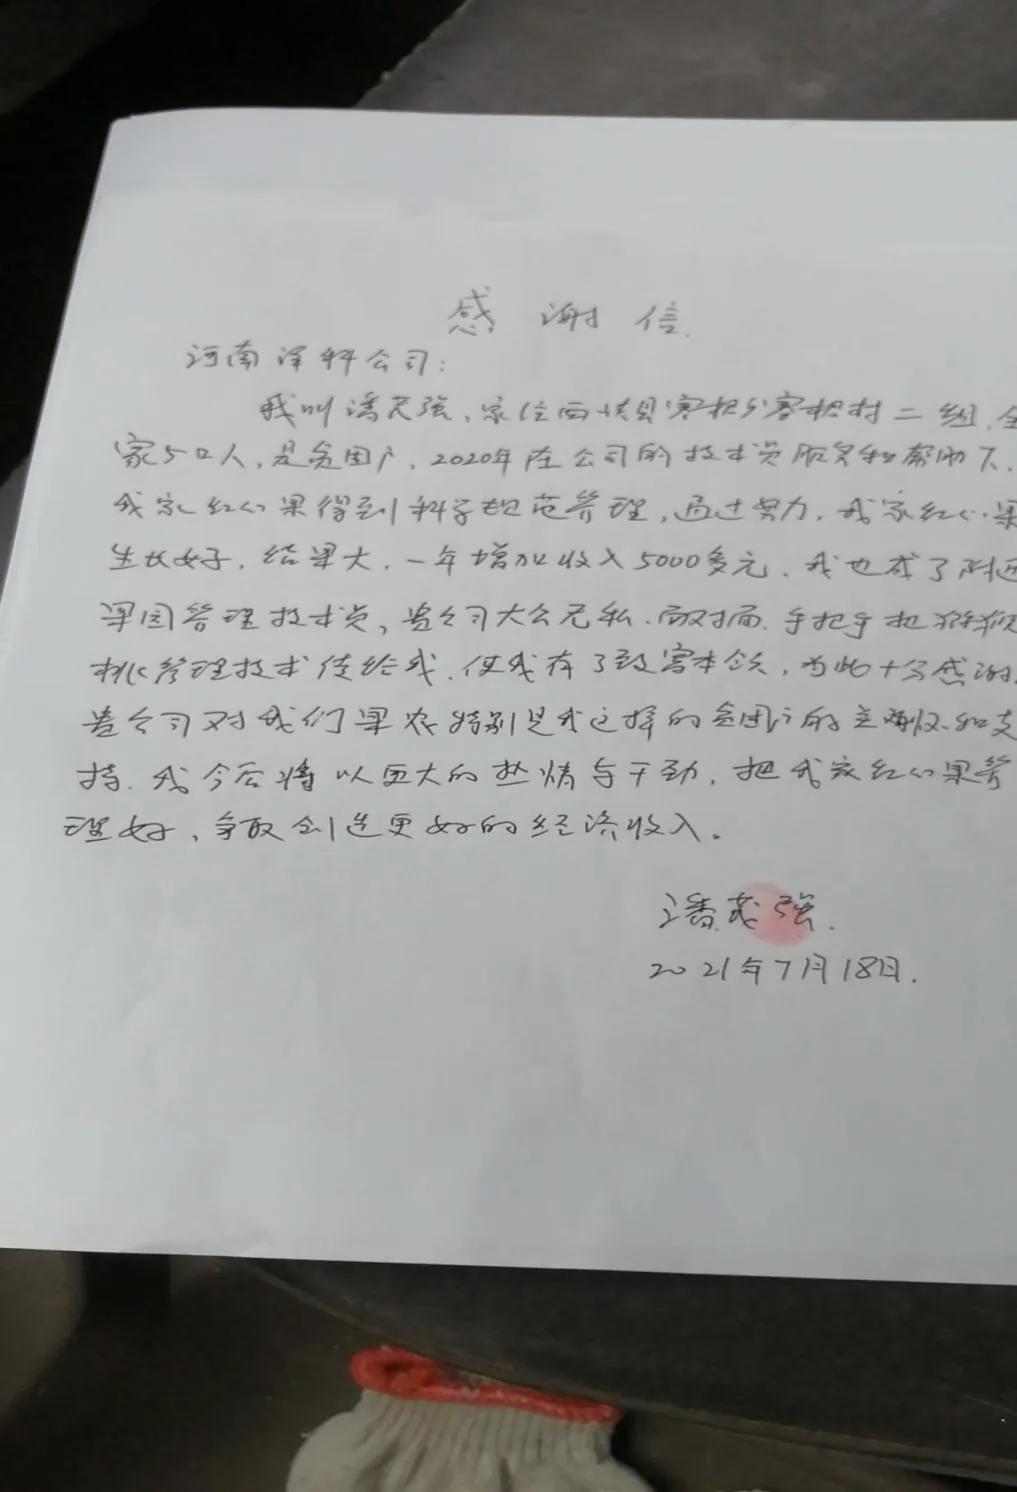 感谢信
河南泽科公司:
我叫潘茂强,家住西峡县寨根乡寨根村二组,全
家5口人,是贫困户,2020年在公司的技术员服务和帮助下,
我家红心果得到科学规范管理,通过努力,我家红心果
生长好,结果大,一年增加收入5000多元,我也成了附近
果园管理技术员,贵公司大公无私,面对面,手把手把猕猴
桃管理技术传给我,使我有了致富本领,为此十分感谢
贵公司对我们果农特别是我这样的贫困户的 和支
持,我今后将以更大的热情与干劲,把我家红心果管
理好,争取创造更好的经济收入。
潘茂强.
2021年7月18日.